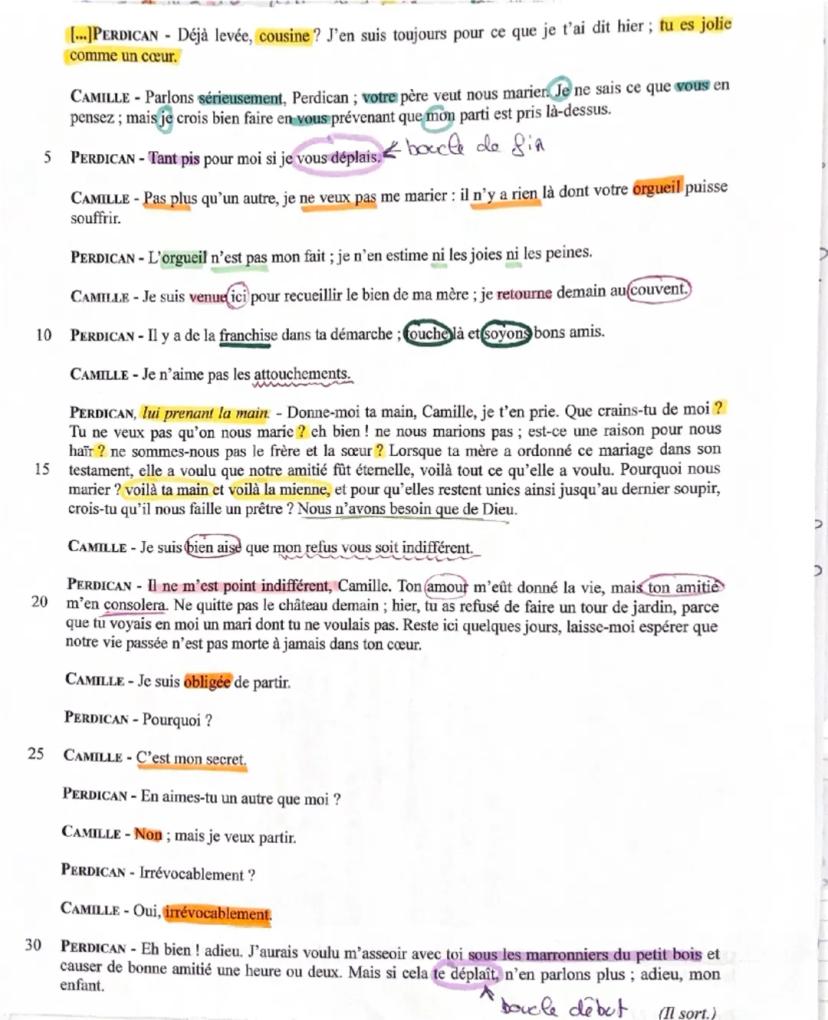 [...]PERDICAN - Déjà levée, cousine ? J'en suis toujours pour ce que je t'ai dit hier ; tu es jolie
comme un cœur.
CAMILLE - Parlons sérieusement, Perdican ; votre père veut nous marier. Je ne sais ce que vous en
pensez ; mais je crois bien faire en vous prévenant que mon parti est pris là-dessus.
5 PERDICAN - Tant pis pour moi si je vous déplais. boucle de fin
CAMILLE - Pas plus qu'un autre, je ne veux pas me marier : il n'y a rien là dont votre orgueil puisse
souffrir.
PERDICAN - L'orgueil n'est pas mon fait ; je n'en estime ni les joies ni les peines.
CAMILLE - Je suis venue ici pour recueillir le bien de ma mère ; je retourne demain au couvent.
10 PERDICAN - Il y a de la franchise dans ta démarche ; touche là et soyons bons amis.
CAMILLE - Je n'aime pas les attouchements.
PERDICAN, lui prenant la main. - Donne-moi ta main, Camille, je t'en prie. Que crains-tu de moi ?
Tu ne veux pas qu'on nous marie ? eh bien ! ne nous marions pas ; est-ce une raison pour nous
haïr ? ne sommes-nous pas le frère et la sœur ? Lorsque ta mère a ordonné ce mariage dans son
15 testament, elle a voulu que notre amitié fût éternelle, voilà tout ce qu'elle a voulu. Pourquoi nous
marier ? voilà ta main et voilà la mienne, et pour qu'elles restent unies ainsi jusqu'au dernier soupir,
crois-tu qu'il nous faille un prêtre ? Nous n'avons besoin que de Dieu.
CAMILLE - Je suis bien aise que mon refus vous soit indifférent.
PERDICAN - Il ne m'est point indifférent, Camille. Ton amour m'eût donné la vie, mais ton amitié
20 m'en consolera. Ne quitte pas le château demain ; hier, tu as refusé de faire un tour de jardin, parce
que tu voyais en moi un mari dont tu ne voulais pas. Reste ici quelques jours, laisse-moi espérer que
notre vie passée n'est pas morte à jamais dans ton cœur.
CAMILLE - Je suis obligée de partir.
PERDICAN - Pourquoi ?
25 CAMILLE - C'est mon secret.
PERDICAN - En aimes-tu un autre que moi ?
CAMILLE - Non ; mais je veux partir.
PERDICAN - Irrévocablement ?
CAMILLE - Oui, irrévocablement.
30 PERDICAN - Eh bien ! adieu. J'aurais voulu m'asseoir avec toi sous les marronniers du petit bois et
causer de bonne amitié une heure ou deux. Mais si cela te déplaît, n'en parlons plus ; adieu, mon
enfant.
boucle début (Il sort.)